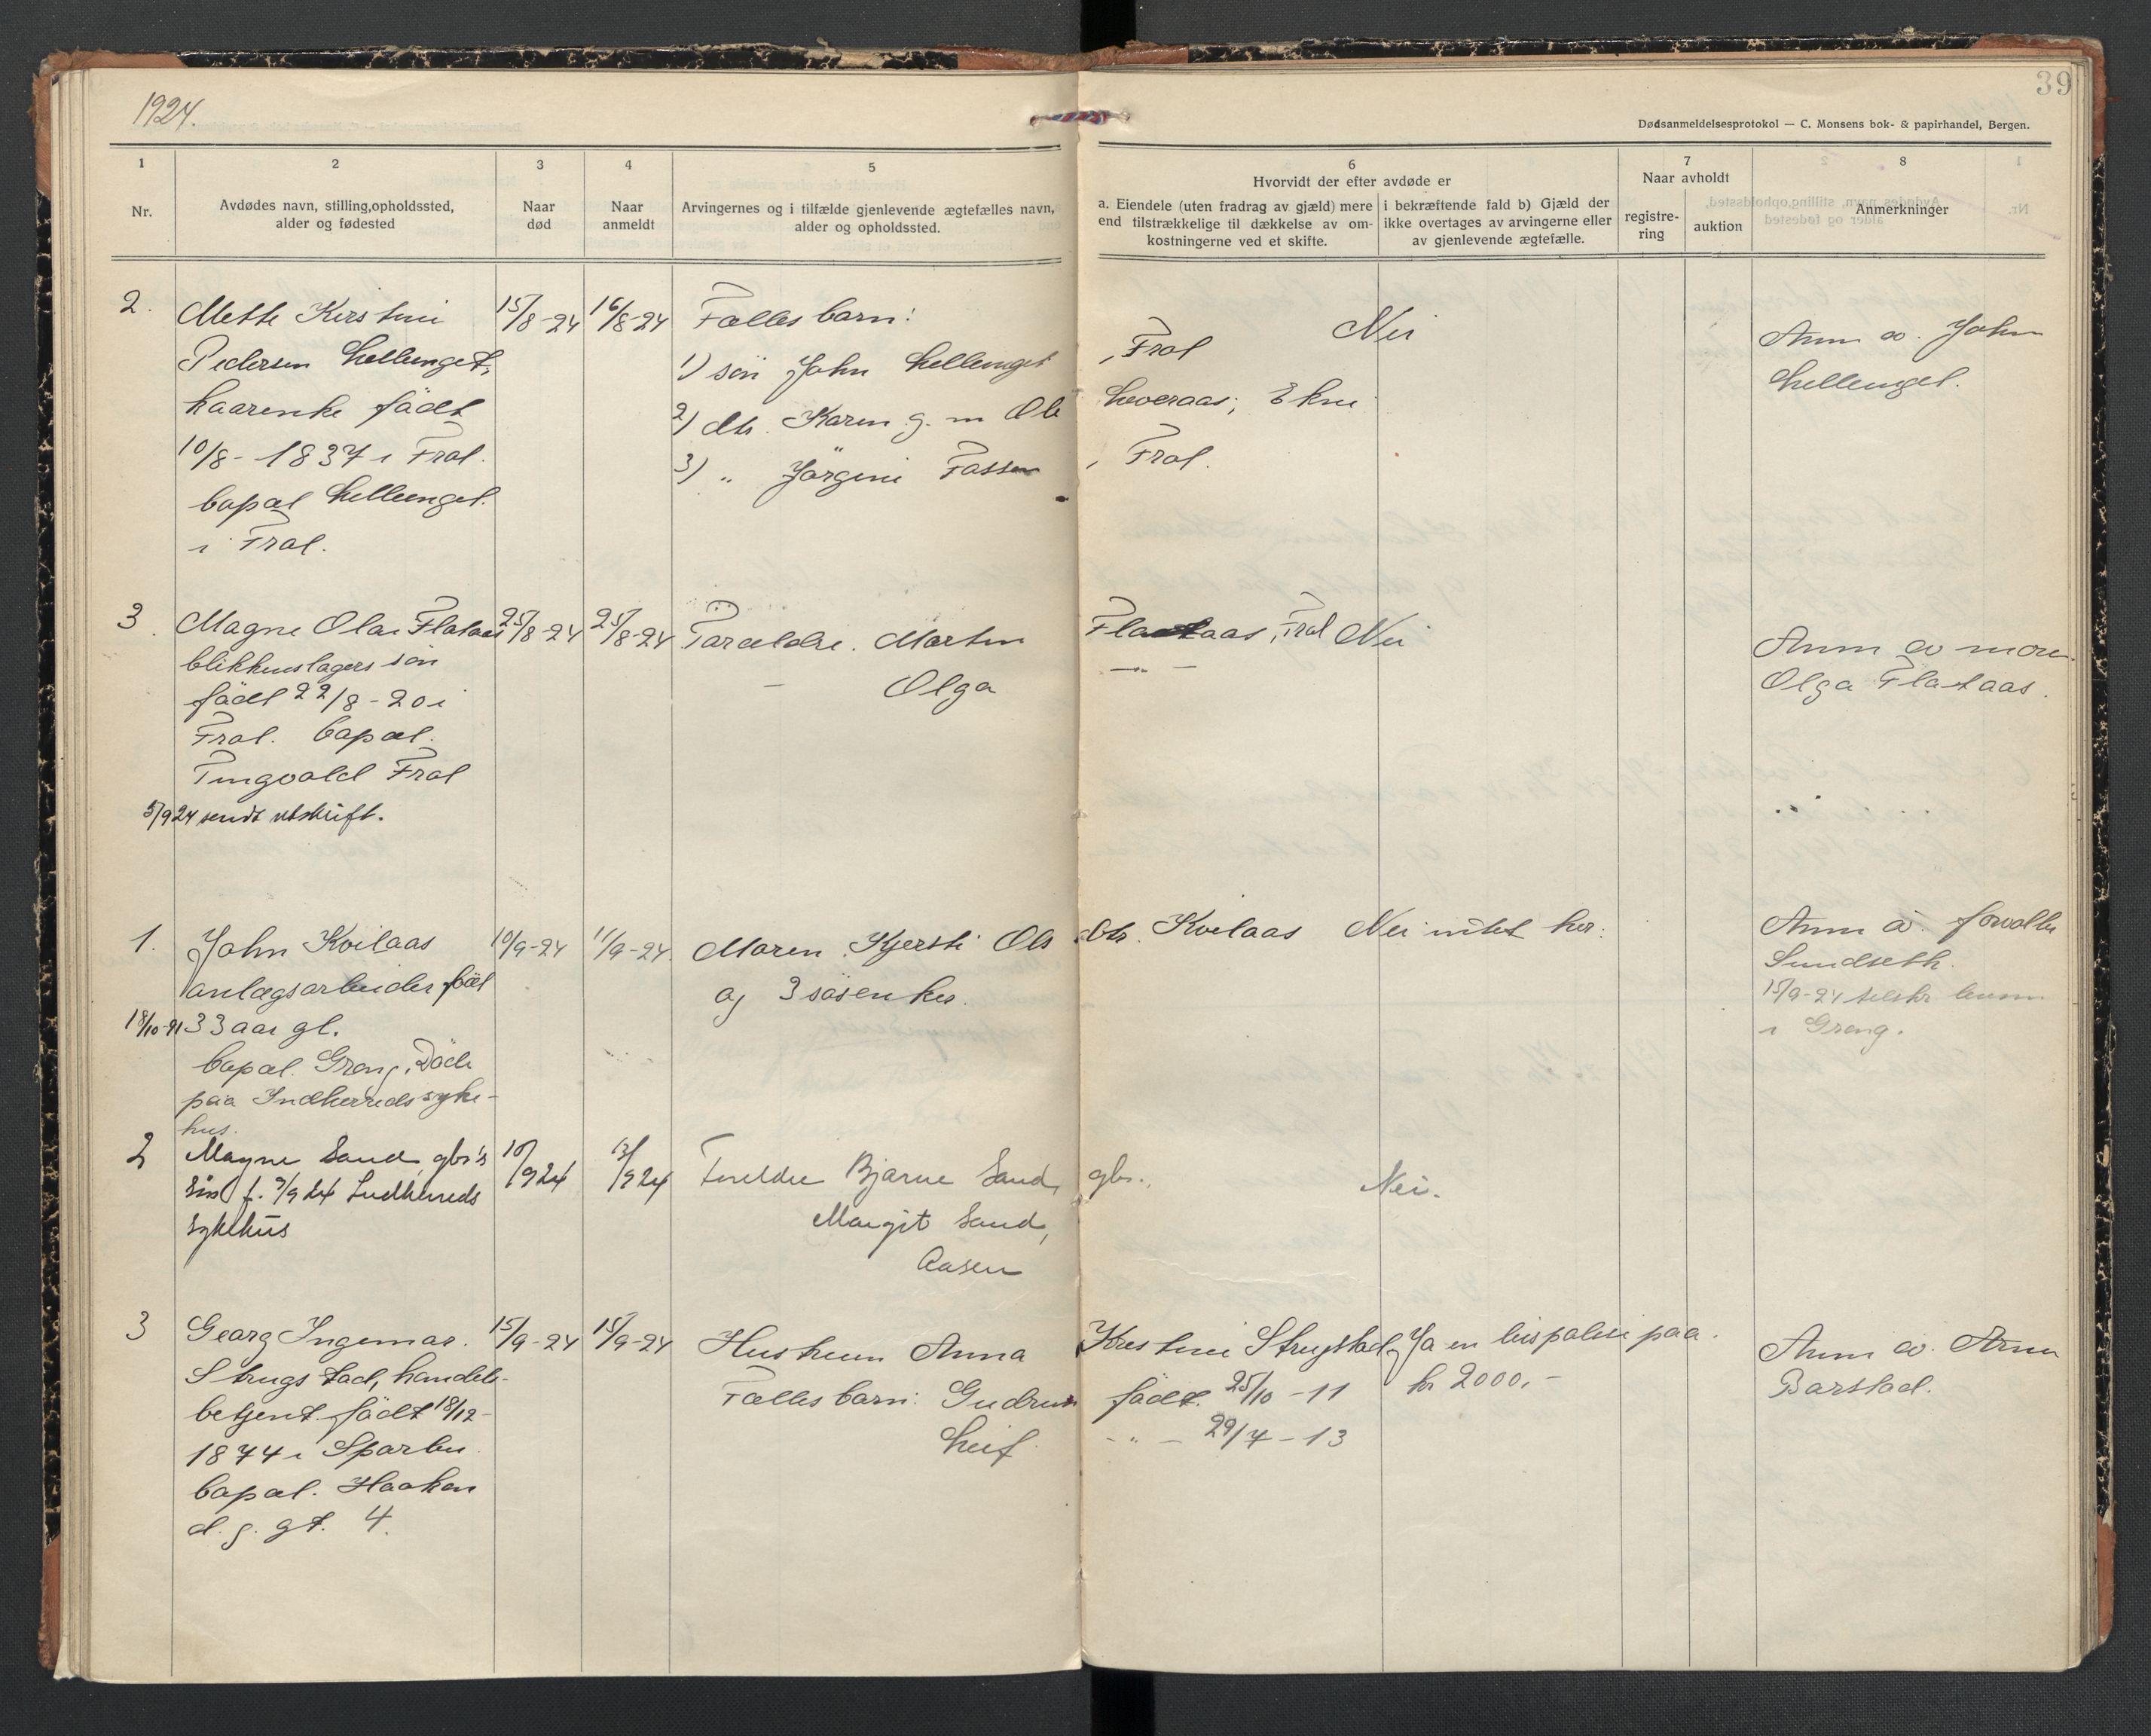 1924.
39
Dødsanmeldelsesprotokol — C. Monsens bok- & papirhandel, Bergen.
1
Nr.
2
Avdødes navn, stilling, opholdssted,
alder og fødested
3
Naar
død
4
Naar
anmeldt
5
Arvingernes og i tilfælde gjenlevende ægtefælles navn,
alder og opholdssted.
6
Hvorvidt der efter avdøde er
a. Eiendele (uten fradrag av gjæld) mere
end tilstrækkelige til dækkelse av om-
kostningerne ved et skifte.
i bekræftende fald b) Gjæld der
ikke overtages av arvingerne eller
av gjenlevende ægtefælle.
7
Naar avholdt
registre-
ring
auktion
8
Anmerkninger
2.
Mette Kirstine
Pedersen Hellenget,
kaarenke född
10/8-1837 i Frol.
bopæl Hellenget.
i Frol.
15/8-24
16/8-24
Fælles barn:
1) sön John Hellenget, Frol
2) dtr. Karen g. m Ole Hoveraas, Ekne
3) " Jörgine Fossen, Frol.
Nei
Anm av. John
Hellenget.
3.
Magne Olav Flataas
blikkenslagers sön
född 22/8-20 i
Frol. bopæl.
Tingvold Frol
5/9 24 sendt utskrift.
25/8-24
25/8-24
Foræeldre. Morten Flataas, Frol
— Olga — —
Nei
Anm av moren
Olga Flataas.
1.
John Kvilaas
anlægsarbeider föd
18/10-91 33 aar gl.
bopæl. Grong. Död
paa Indherreds syke-
hus.
10/9-24
11/9-24.
Moren Kjersti Ols dtr. Kvilaas
og 3 sösken her.
Nei intet her.
Anm av. forvalter
Sundseth.
15/9-24 tilskr lensm
i Grong.
2
Magne Sand, gbr's
sön f. 9/9 24 Indherreds
sykehus
10/9 24
13/9 24
Foreldre Bjarne Sand, gbr.,
Margit Sand,
Aasen
Nei.
3
Georg Ingemar.
Strugstad, handels-
betjent född 18/12-
1874 i Sparbu.
bopæl. Haakon
d. g. gt. 4.
15/9-24
15/9-24
Hustruen Anna Kristine Strugstad,
Fælles barn: Gudrun född. 25/10-11
Leif - " - 29/7-13
Ja en livspolise paa.
kr 2000,-
Anm av. Arne
Barstad.